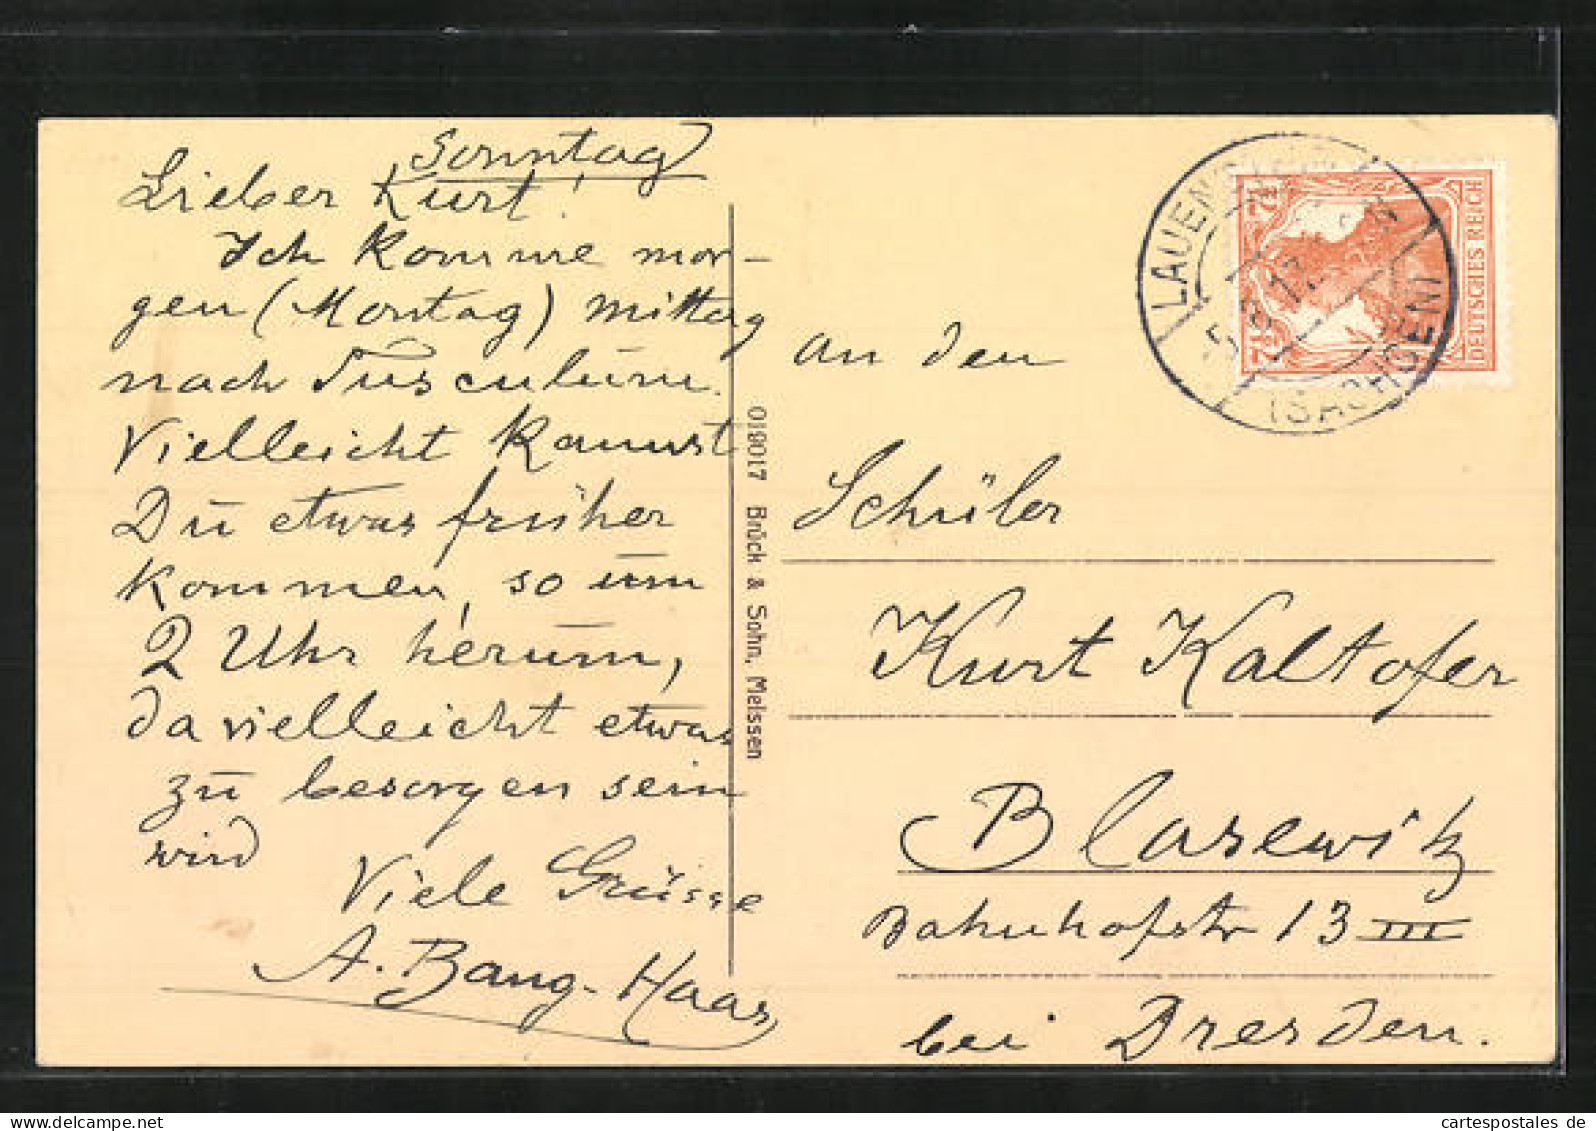 Sonntag
Lieber Kurt!
Ich komme mor-
gen (Montag) mittag
nach Tusculum.
Vielleicht kannst
Du etwas früher
kommen, so um
2 Uhr herum,
da vielleicht etwas
zu besorgen sein
wird
Viele Grüsse
A. Bang-Haas
019017 Brück & Sohn, Meissen
an den
Schüler
Kurt Kaltofer
Blasewitz
Bahnhofstr 13 III
bei Dresden.
LAUENSTEIN
5.8.17
(SACHSEN)
DEUTSCHES REICH
7½
7½
cartespostales de